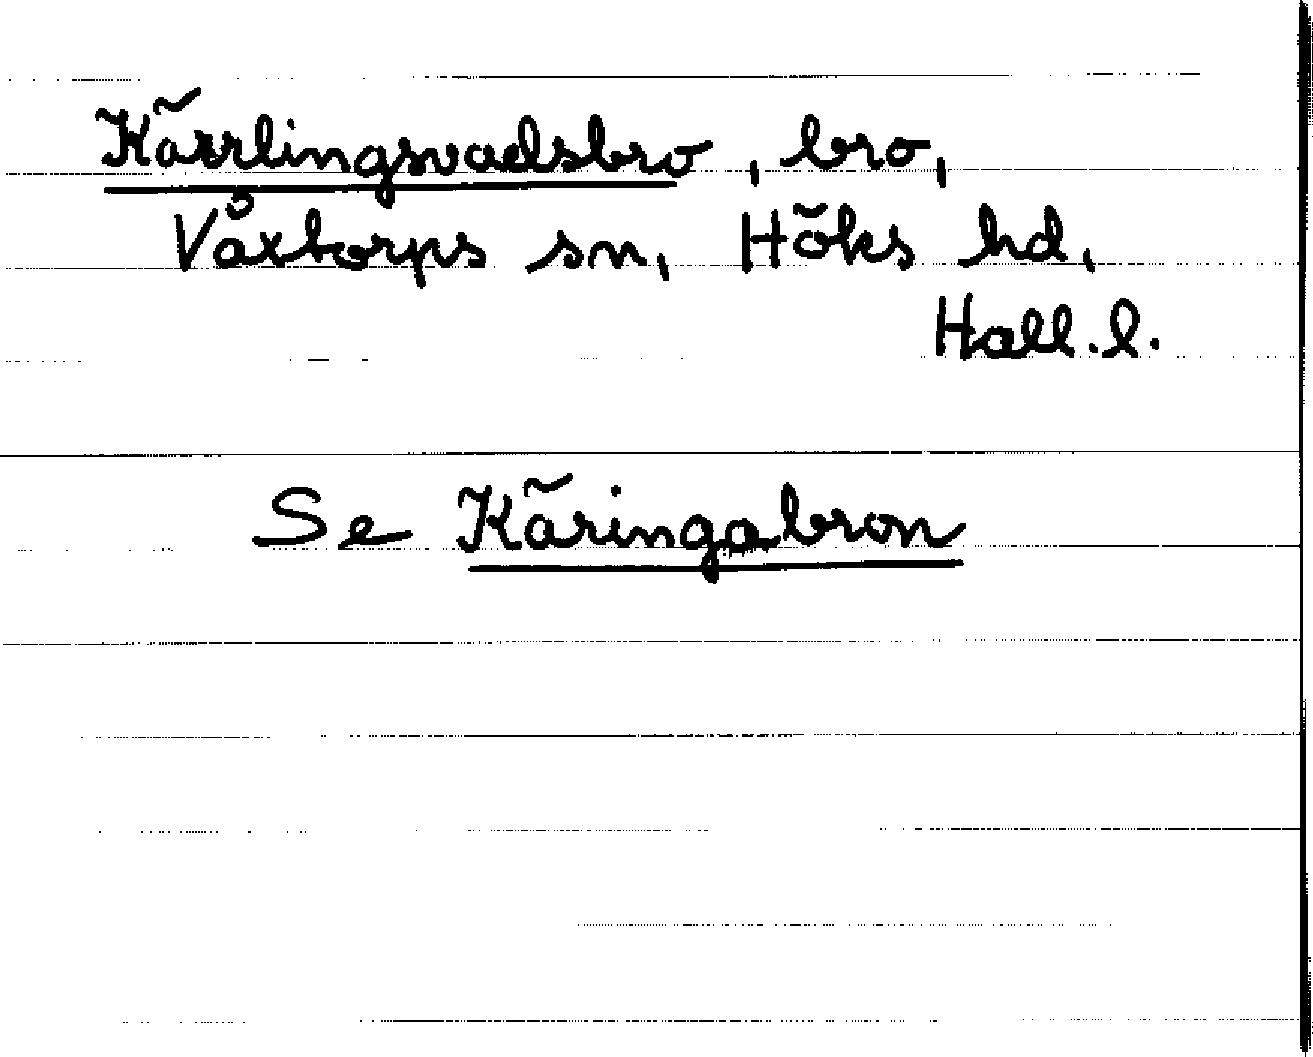 Kärrlingsvadsbro, bro,
Våxtorps sn, Höks hd,
Hall. l.
Se Käringabron